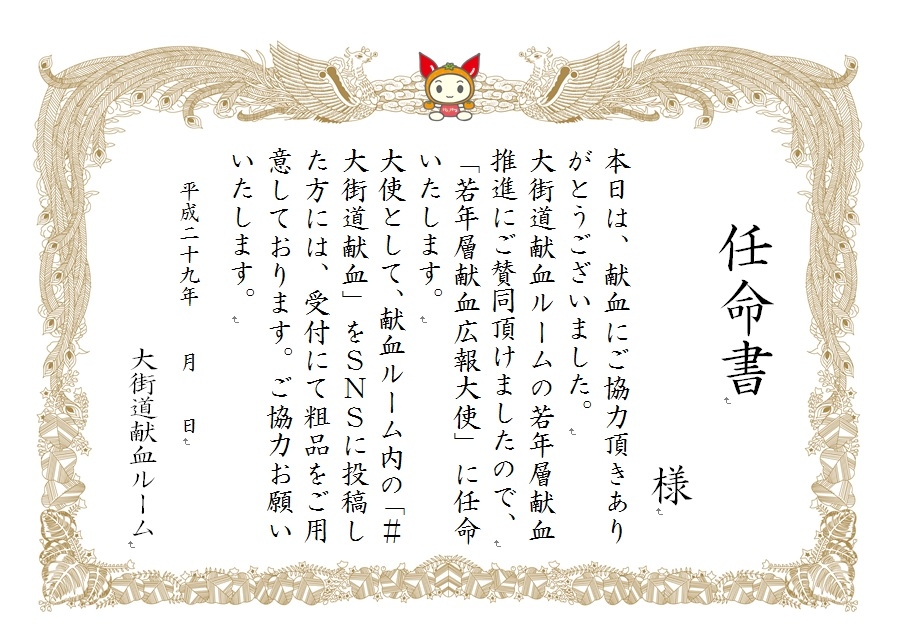 任命書
様
本日は、献血にご協力頂きあり
がとうございました。
大街道献血ルームの若年層献血
推進にご賛同頂けましたので、
「若年層献血広報大使」に任命
いたします。
大使として、献血ルーム内の「＃
大街道献血」をＳＮＳに投稿し
た方には、受付にて粗品をご用
意しております。ご協力お願い
いたします。
平成二十九年　月　日
大街道献血ルーム